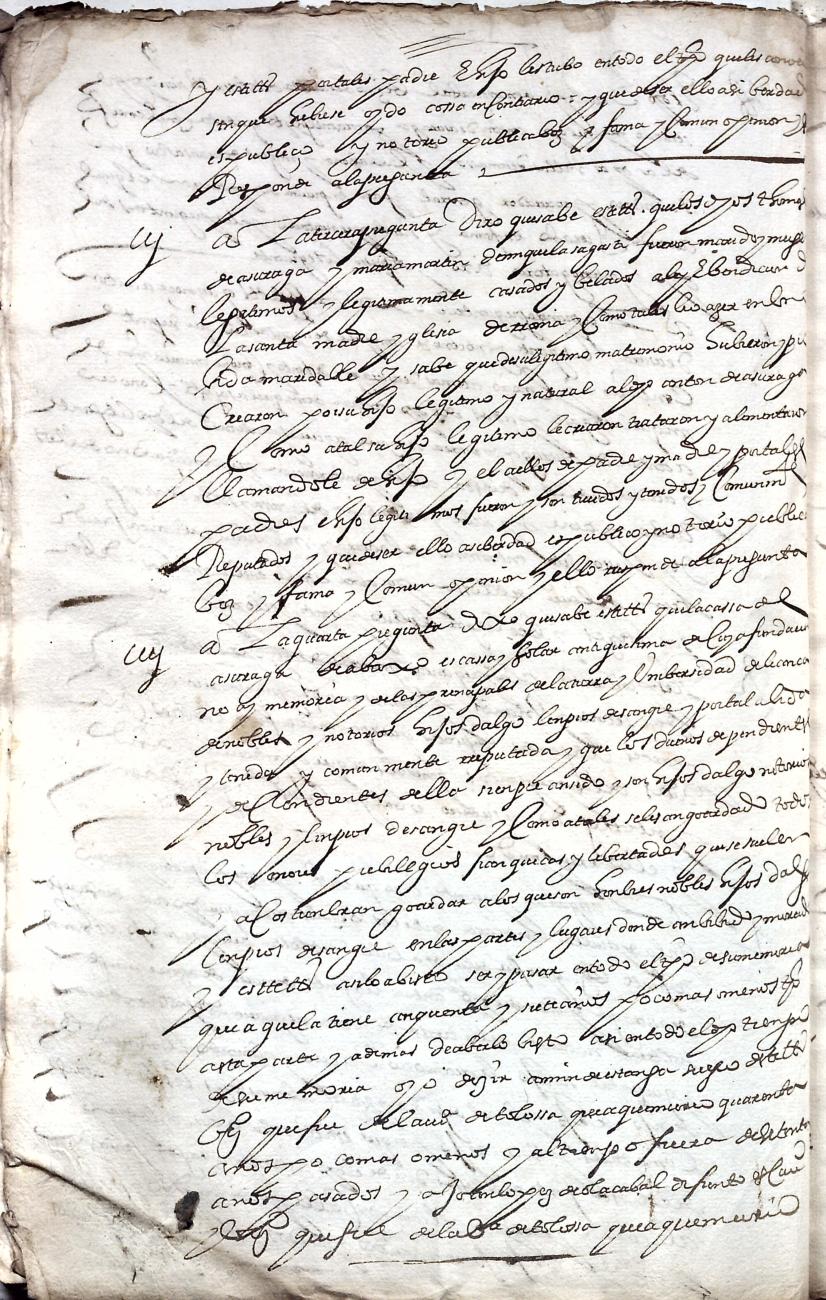 y este tº por tales padre E hijo les tubo en todo el tpo que les conoçio
sin que hubiese oydo cossa en contrario y que de ser ello asi berdad
es publico y notorio publica boz y fama y comun opinion y
Responde a la pregunta
iij a La tercera pregunta dixo que sabe este tº que los dhos thomas
de asuraga y maria martin fueron marido y muger
legitimos y legitimamente casados y belados a ley E bendicion de
La santa madre yglesia de rroma y Como tales hazer en Uno
bida maridable y sabe que de su legitimo matrimonio hubieron y pro
Crearon por su hijo legitimo y natural al dho de asuraga
y Como a tal su hijo legitimo le criaron trataron y alimentaron
llamandole de hijo y el a ellos de padre y madre y por tales
padres e hijo legitimos fueron y son tenidos y Comunmte
Reputados y que de ser ello asi berdad es publico y notorio publica
boz y fama y Comun opinion y ello responde a la pregunta
iiij a La quarta pregunta dixo que sabe este tº que la cassa de
asuraga de abaxo es cassa y Solar antiquisima de Cuya fundacion
no ay memoria y de las principales de la tierra y Unibersidad de
de nobles y notorios hijos dalgo linpios de sangre y por tal a sido
y tenida y comunmente rreputada y que los duenos dependientes
y desCendientes della sienpre an sido y son hijos dalgo notorios
nobles y linpios de sangre y Como a tales se les an goardado todos
los onores prebillegios franquecas y libertades que se suelen
y aCostunbran goardar a los que son honbres nobles hijos dalgo
linpios de sangre en las partes y lugares donde an bibido y morado
y este tº asi lo a bisto ser y pasar en todo el tpo de su memoria
que aquella tiene cinquenta y siete años poco mas o menos tpo
a esta parte y ademas de aberlo bisto asi en todo el dho tienpo
de su memoria oyo dezir a min de estanga suegro deste tº
Vzº que fue de la vª de tolossa que a que murio quarenta
años poco mas o menos y al tienpo fuera de setenta
años pasados y a Joan lopez de olacabal difunto
que fue de la Vª de tolossa que a que murio